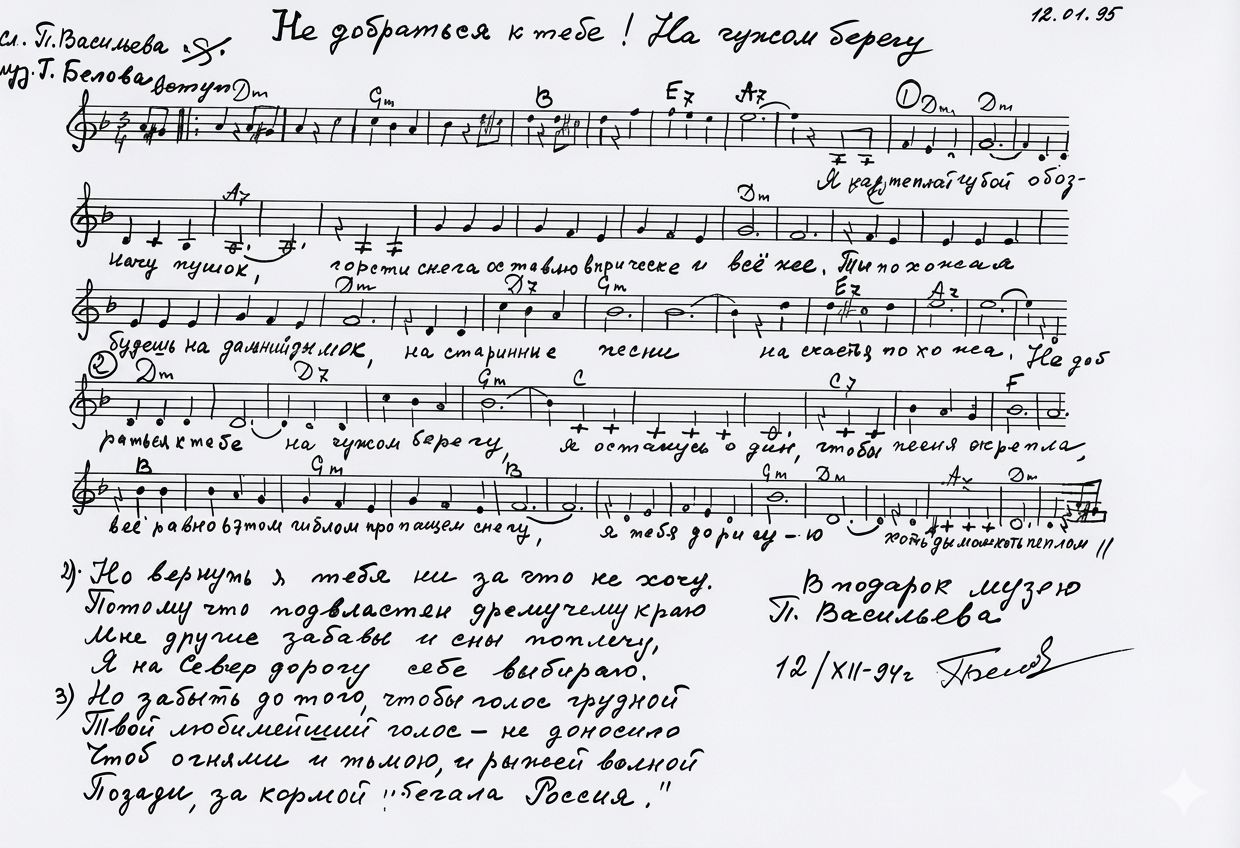 12.01.95
Не добраться к тебе! На чужом берегу
сл. П.Васильева
муз. Г. Белова
вступ Dm Gm B E7 A7 ① Dm Dm
3/4
Я как теплай губой обоз-
A7 Dm
начу пушок, горсти снега оставлю в прическе и всё же. Ты похожая
Dm D7 Gm E7 A7
будешь на дальний дымок, на старинные песни на счастья похожа. Не доб
② Dm D7 Gm C C7 F
раться к тебе на чужом берегу, я останусь один, чтобы песня окрепла,
B Gm B Gm Dm A7 Dm
всё равно в этом гиблом пропащем снегу, я тебя дорисую хоть дымом хоть пеплом
2). Но вернуть я тебя ни за что не хочу.
Потому что подвластен дремучему краю
Мне другие забавы и сны по плечу,
Я на Север дорогу себе выбираю.
3) Но забыть до того, чтобы голос грудной
Твой любимейший голос – не доносило
Чтоб огнями и тьмою, и рыжей волной
Позади, за кормой "бегала Россия."
В подарок музею
П. Васильева
12/XII-94г